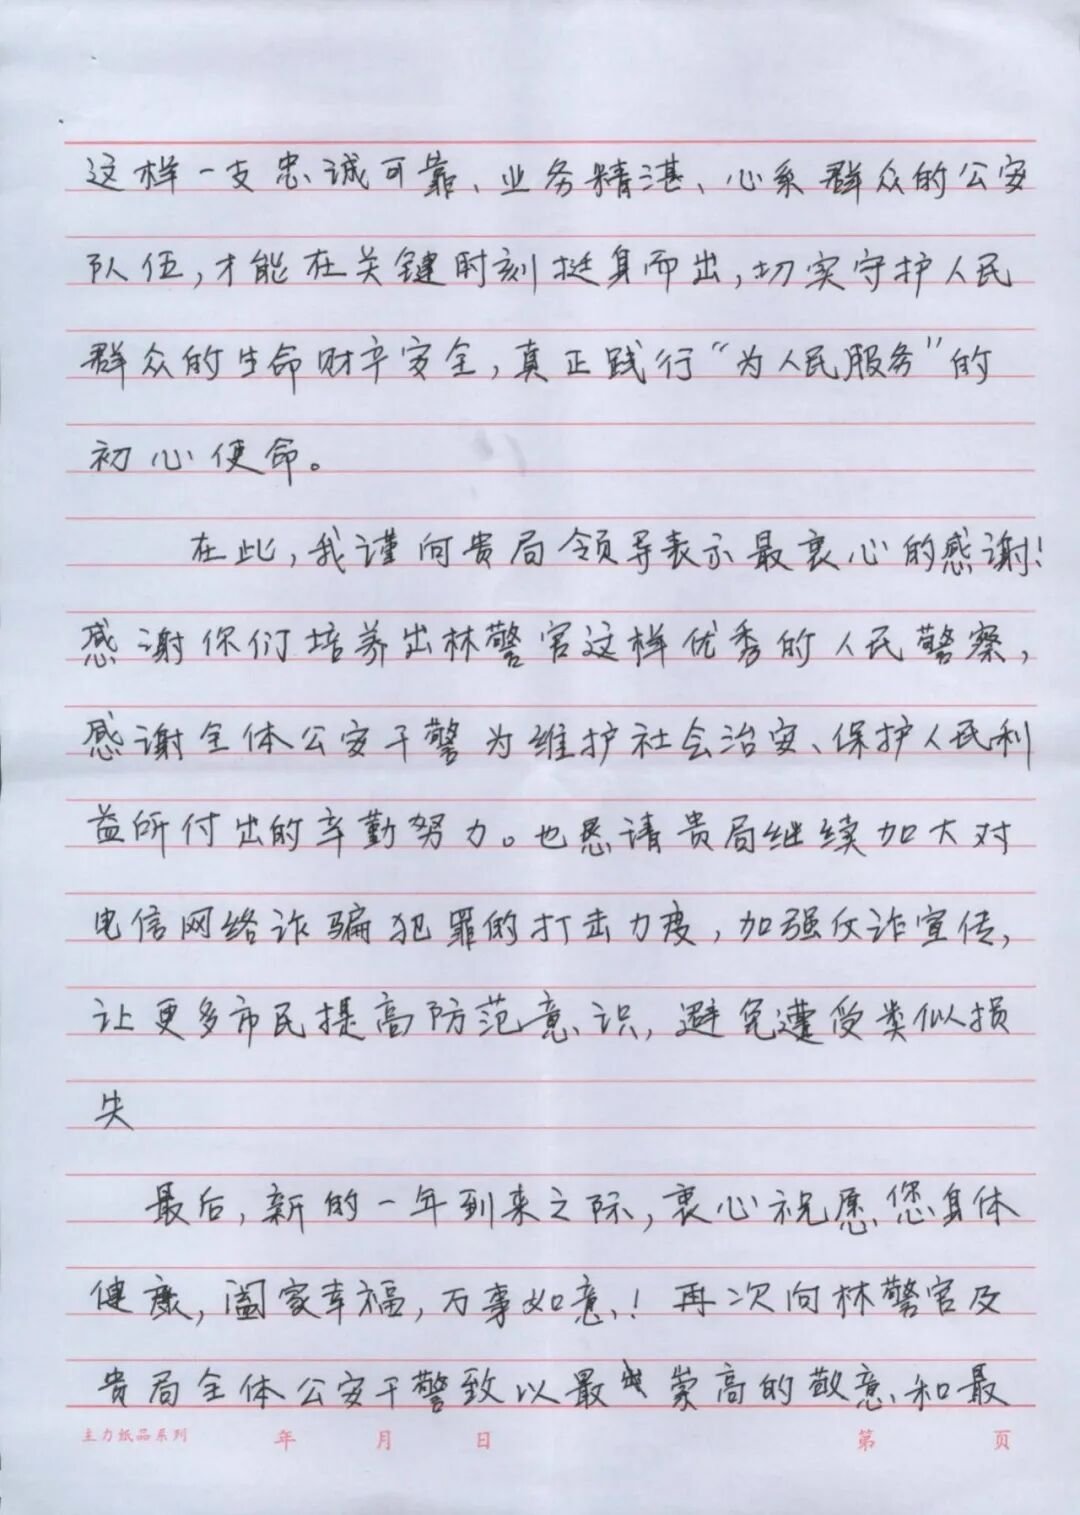 这样一支忠诚可靠、业务精湛、心系群众的公安
队伍，才能在关键时刻挺身而出，切实守护人民
群众的生命财产安全，真正践行“为人民服务”的
初心使命。
在此，我谨向贵局领导表示最衷心的感谢！
感谢你们培养出林警官这样优秀的人民警察，
感谢全体公安干警为维护社会治安、保护人民利
益所付出的辛勤努力。也恳请贵局继续加大对
电信网络诈骗犯罪的打击力度，加强反诈宣传，
让更多市民提高防范意识，避免遭受类似损
失
最后，新的一年到来之际，衷心祝愿您身体
健康，阖家幸福，万事如意！再次向林警官及
贵局全体公安干警致以最崇高的敬意和最
主力纸品系列 年 月 日 第 页